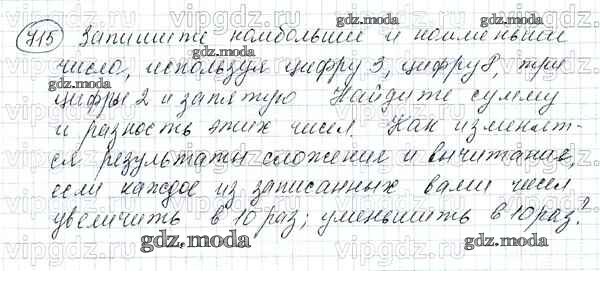 715 Запишите наибольшее и наименьшее
число, используя цифру 3, цифру 8, три
цифры 2 и запятую Найдите сумму
и разность этих чисел. Как изменят-
ся результаты сложения и вычитания,
если каждое из записанных вами чисел
увеличить в 10 раз; уменьшить в 10 раз?
gdz.moda
gdz.moda
gdz.moda
gdz.moda
gdz.moda
gdz.moda
vipgdz.ru
vipgdz.ru
vipgdz.ru
vipgdz.ru